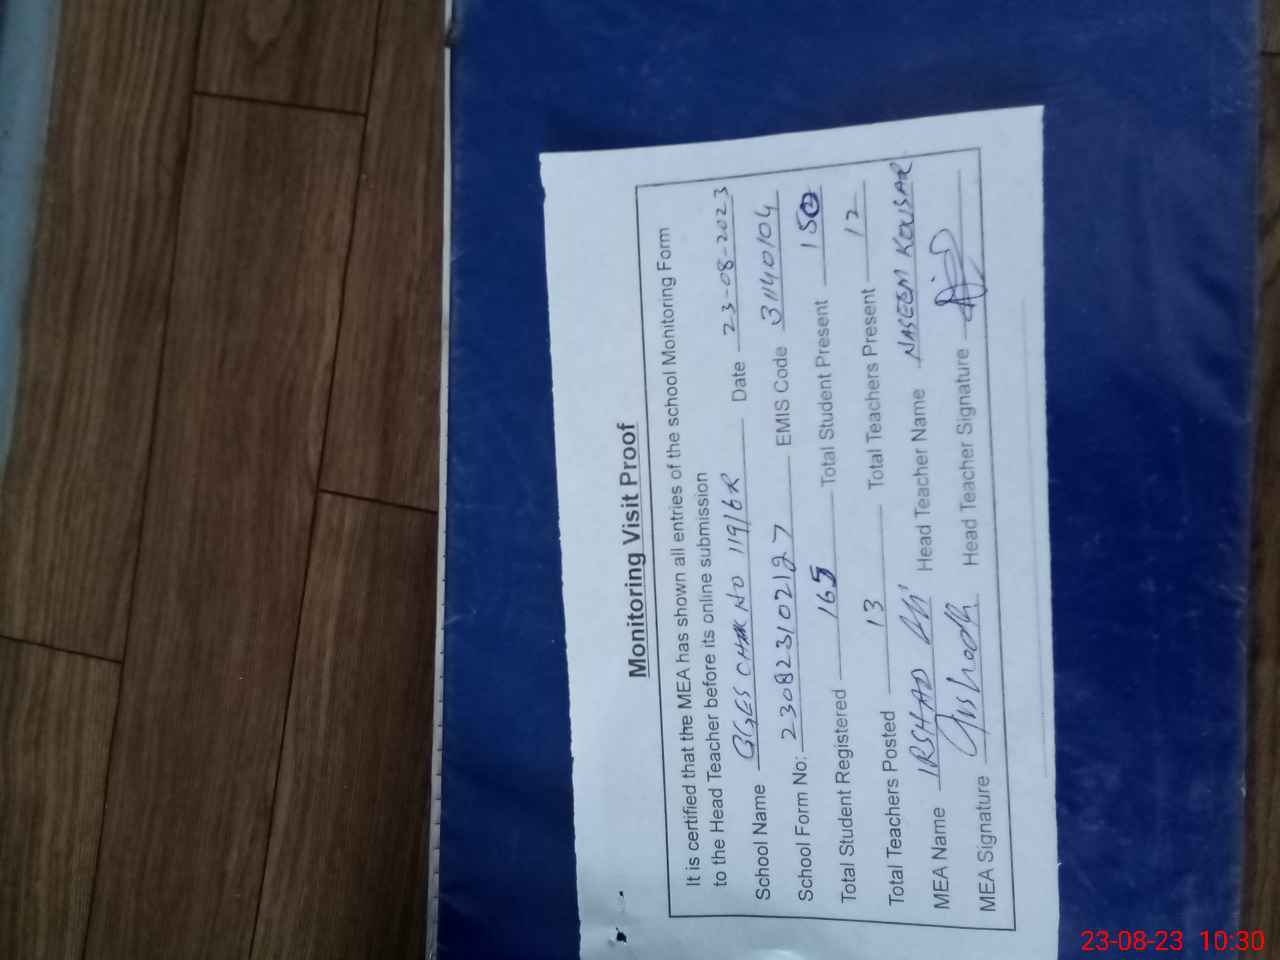 Monitoring Visit Proof
It is certified that the MEA has shown all entries of the school Monitoring Form
to the Head Teacher before its online submission
School Name GGES CHAK NO 119/6R Date 23-08-2023
School Form No: 230823102127 EMIS Code 31140104
Total Student Registered 165 Total Student Present 150
Total Teachers Posted 13 Total Teachers Present 12
MEA Name IRSHAD Ali Head Teacher Name NASEEM KOUSAR
MEA Signature Head Teacher Signature
23-08-23 10:30